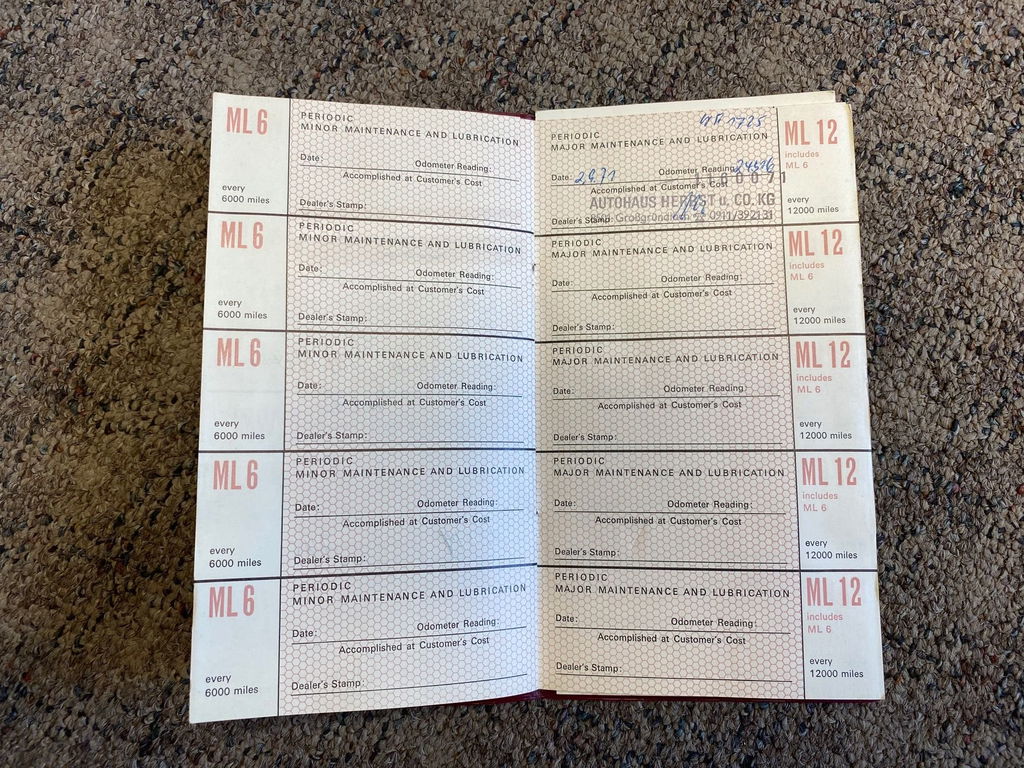 ML 6
PERIODIC
MINOR MAINTENANCE AND LUBRICATION
Date:
Odometer Reading:
Accomplished at Customer's Cost
every
6000 miles
Dealer's Stamp:
ML 6
PERIODIC
MINOR MAINTENANCE AND LUBRICATION
Date:
Odometer Reading:
Accomplished at Customer's Cost
every
6000 miles
Dealer's Stamp:
ML 6
PERIODIC
MINOR MAINTENANCE AND LUBRICATION
Date:
Odometer Reading:
Accomplished at Customer's Cost
every
6000 miles
Dealer's Stamp:
ML 6
PERIODIC
MINOR MAINTENANCE AND LUBRICATION
Date:
Odometer Reading:
Accomplished at Customer's Cost
every
6000 miles
Dealer's Stamp:
ML 6
PERIODIC
MINOR MAINTENANCE AND LUBRICATION
Date:
Odometer Reading:
Accomplished at Customer's Cost
every
6000 miles
Dealer's Stamp:
1725
PERIODIC
MAJOR MAINTENANCE AND LUBRICATION
ML 12
includes
ML 6
Date:
Odometer Reading:
Accomplished at Customer's Cost
AUTOHAUS HERBST u. CO. KG
Dealer's Stamp:
0911/392131
every
12000 miles
PERIODIC
MAJOR MAINTENANCE AND LUBRICATION
ML 12
includes
ML 6
Date:
Odometer Reading:
Accomplished at Customer's Cost
Dealer's Stamp:
every
12000 miles
PERIODIC
MAJOR MAINTENANCE AND LUBRICATION
ML 12
includes
ML 6
Date:
Odometer Reading:
Accomplished at Customer's Cost
Dealer's Stamp:
every
12000 miles
PERIODIC
MAJOR MAINTENANCE AND LUBRICATION
ML 12
includes
ML 6
Date:
Odometer Reading:
Accomplished at Customer's Cost
Dealer's Stamp:
every
12000 miles
PERIODIC
MAJOR MAINTENANCE AND LUBRICATION
ML 12
includes
ML 6
Date:
Odometer Reading:
Accomplished at Customer's Cost
Dealer's Stamp:
every
12000 miles